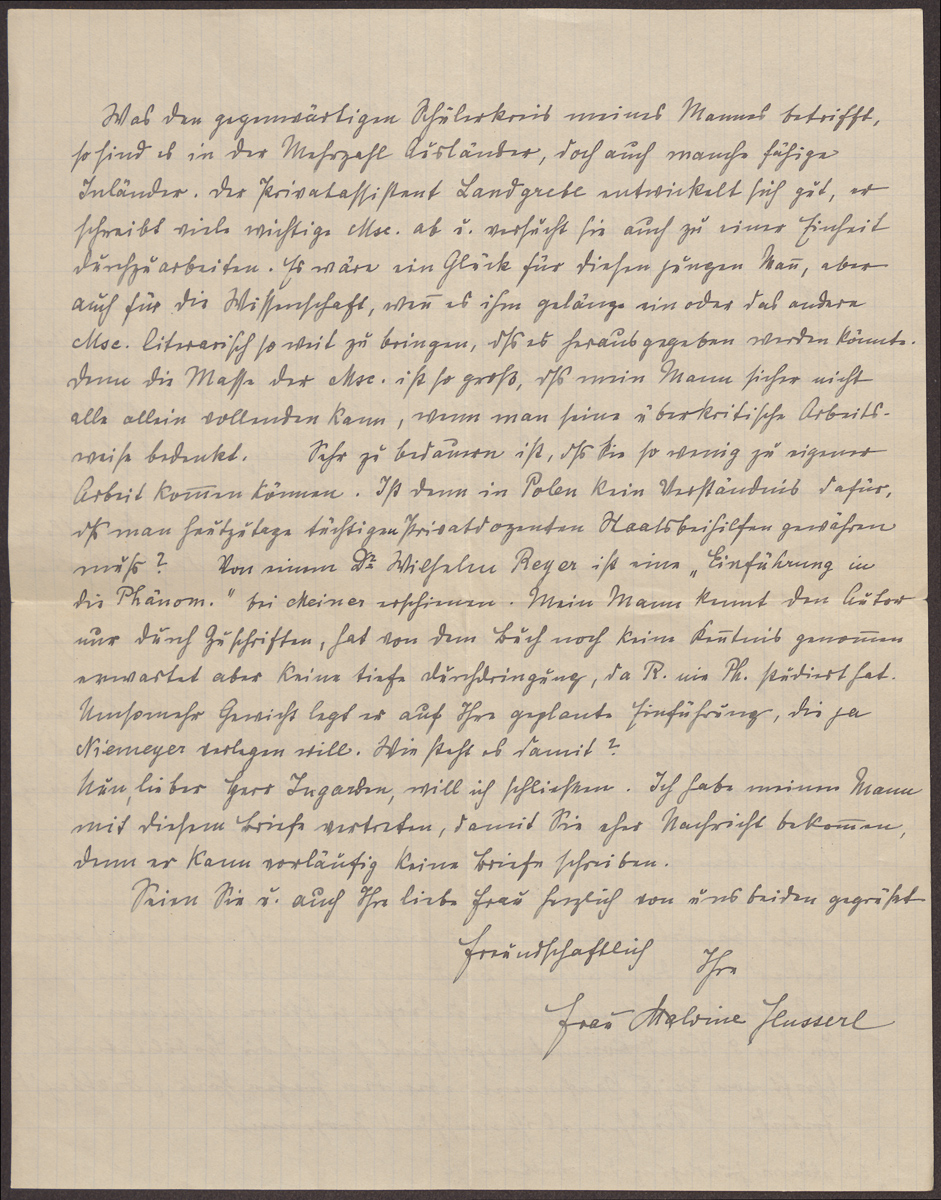 Was den gegenwärtigen Schülerkreis meines Mannes betrifft,
so sind es in der Mehrzahl Ausländer, doch auch manche fähige
Inländer. Der Privatassistent Landgrebe entwickelt sich gut, er
schreibt viele wichtige Msc. ab u. versucht sie auch zu einer Einheit
durchzuarbeiten. Es wäre ein Glück für diesen jungen Mañ, aber
auch für die Wissenschaft, weñ es ihm gelänge ein oder das andere
Msc. literarisch so weit zu bringen, dſs es herausgegeben werden könnte.
Denn die Masse der Msc. ist so groß, dſs mein Mann sicher nicht
alle allein vollenden kann, wenn man seine überkritische Arbeits-
weise bedenkt. Sehr zu bedauern ist, dſs Sie so wenig zu eigener
Arbeit kom̄en können. Ist denn in Polen kein Verständnis dafür,
dſs man heutzutage tüchtigen Privatdozenten Staatsbeihilfen gewähren
muſs? Von einem Dr. Wilhelm Reyer ist eine „Einführung in
die Phänom." bei Meiner erschienen. Mein Mann kennt den Autor
nur durch Zuschriften, hat von dem Buch noch keine Keñtnis genom̄en
erwartet aber keine tiefe Durchdringung, da R. nie Ph. studiert hat.
Umsomehr Gewicht legt er auf Ihre geplante Einführung, die ja
Niemeyer verlegen will. Wie steht es damit?
Nun, lieber Herr Ingarden, will ich schließen. Ich habe meinen Mann
mit diesem Briefe vertreten, damit Sie eher Nachricht bekom̄en,
denn er kann vorläufig keine Briefe schreiben.
Seien Sie u. auch Ihre liebe Frau herzlich von uns beiden gegrüßt
Freundschaftlich Ihre
Frau Malvine Husserl